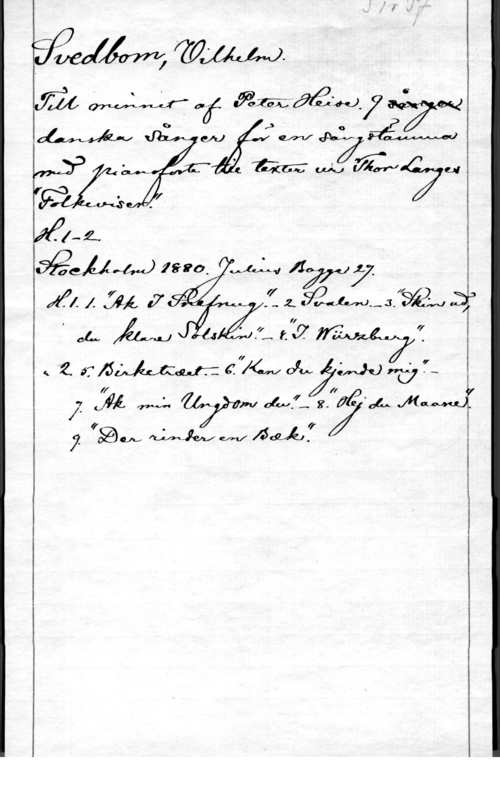 Svedbom, Vilhelm.
Till minnet af Peter Heise. 9 sånger
danska sånger för en sångstämma
med pianoforte till texter ur Thor Langes
"Folkeviser".
H. 1-2.
Stockholm 1880. Julius Bagge 27.
H. 1. 1. "Ak I Småfnug". - 2 Svalen. - 3. "Skin ud,
du klare Solskin". - 4. "I Würzburg".
" 2. 5. Birketræet. - 6. "Kan du kjende mig". -
7. "Ak min Ungdom du". - 8. "Hej du Maane".
9. "Der rinder en Bæk".